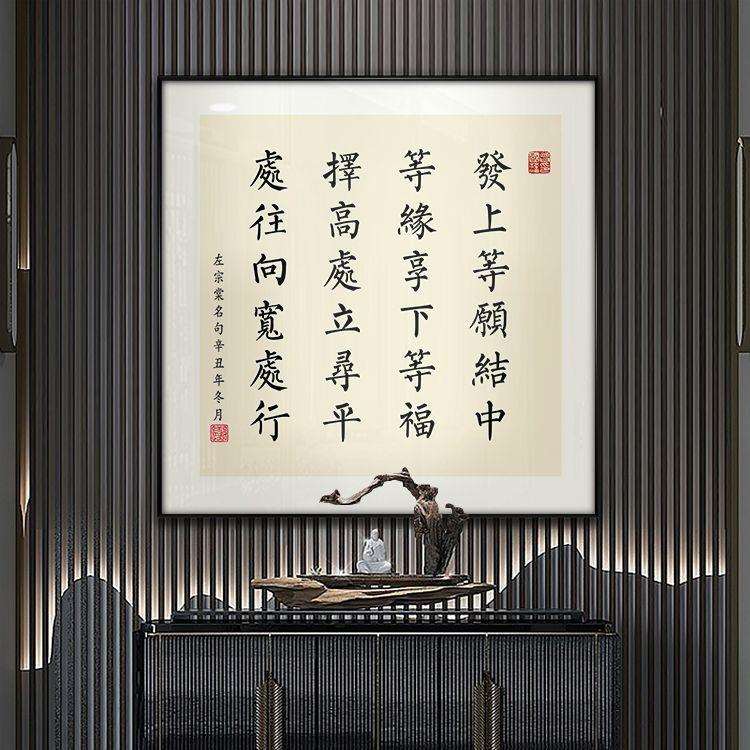 發上等願結中
等緣享下等福
擇高處立尋平
處往向寬處行
左宗棠名句辛丑年冬月